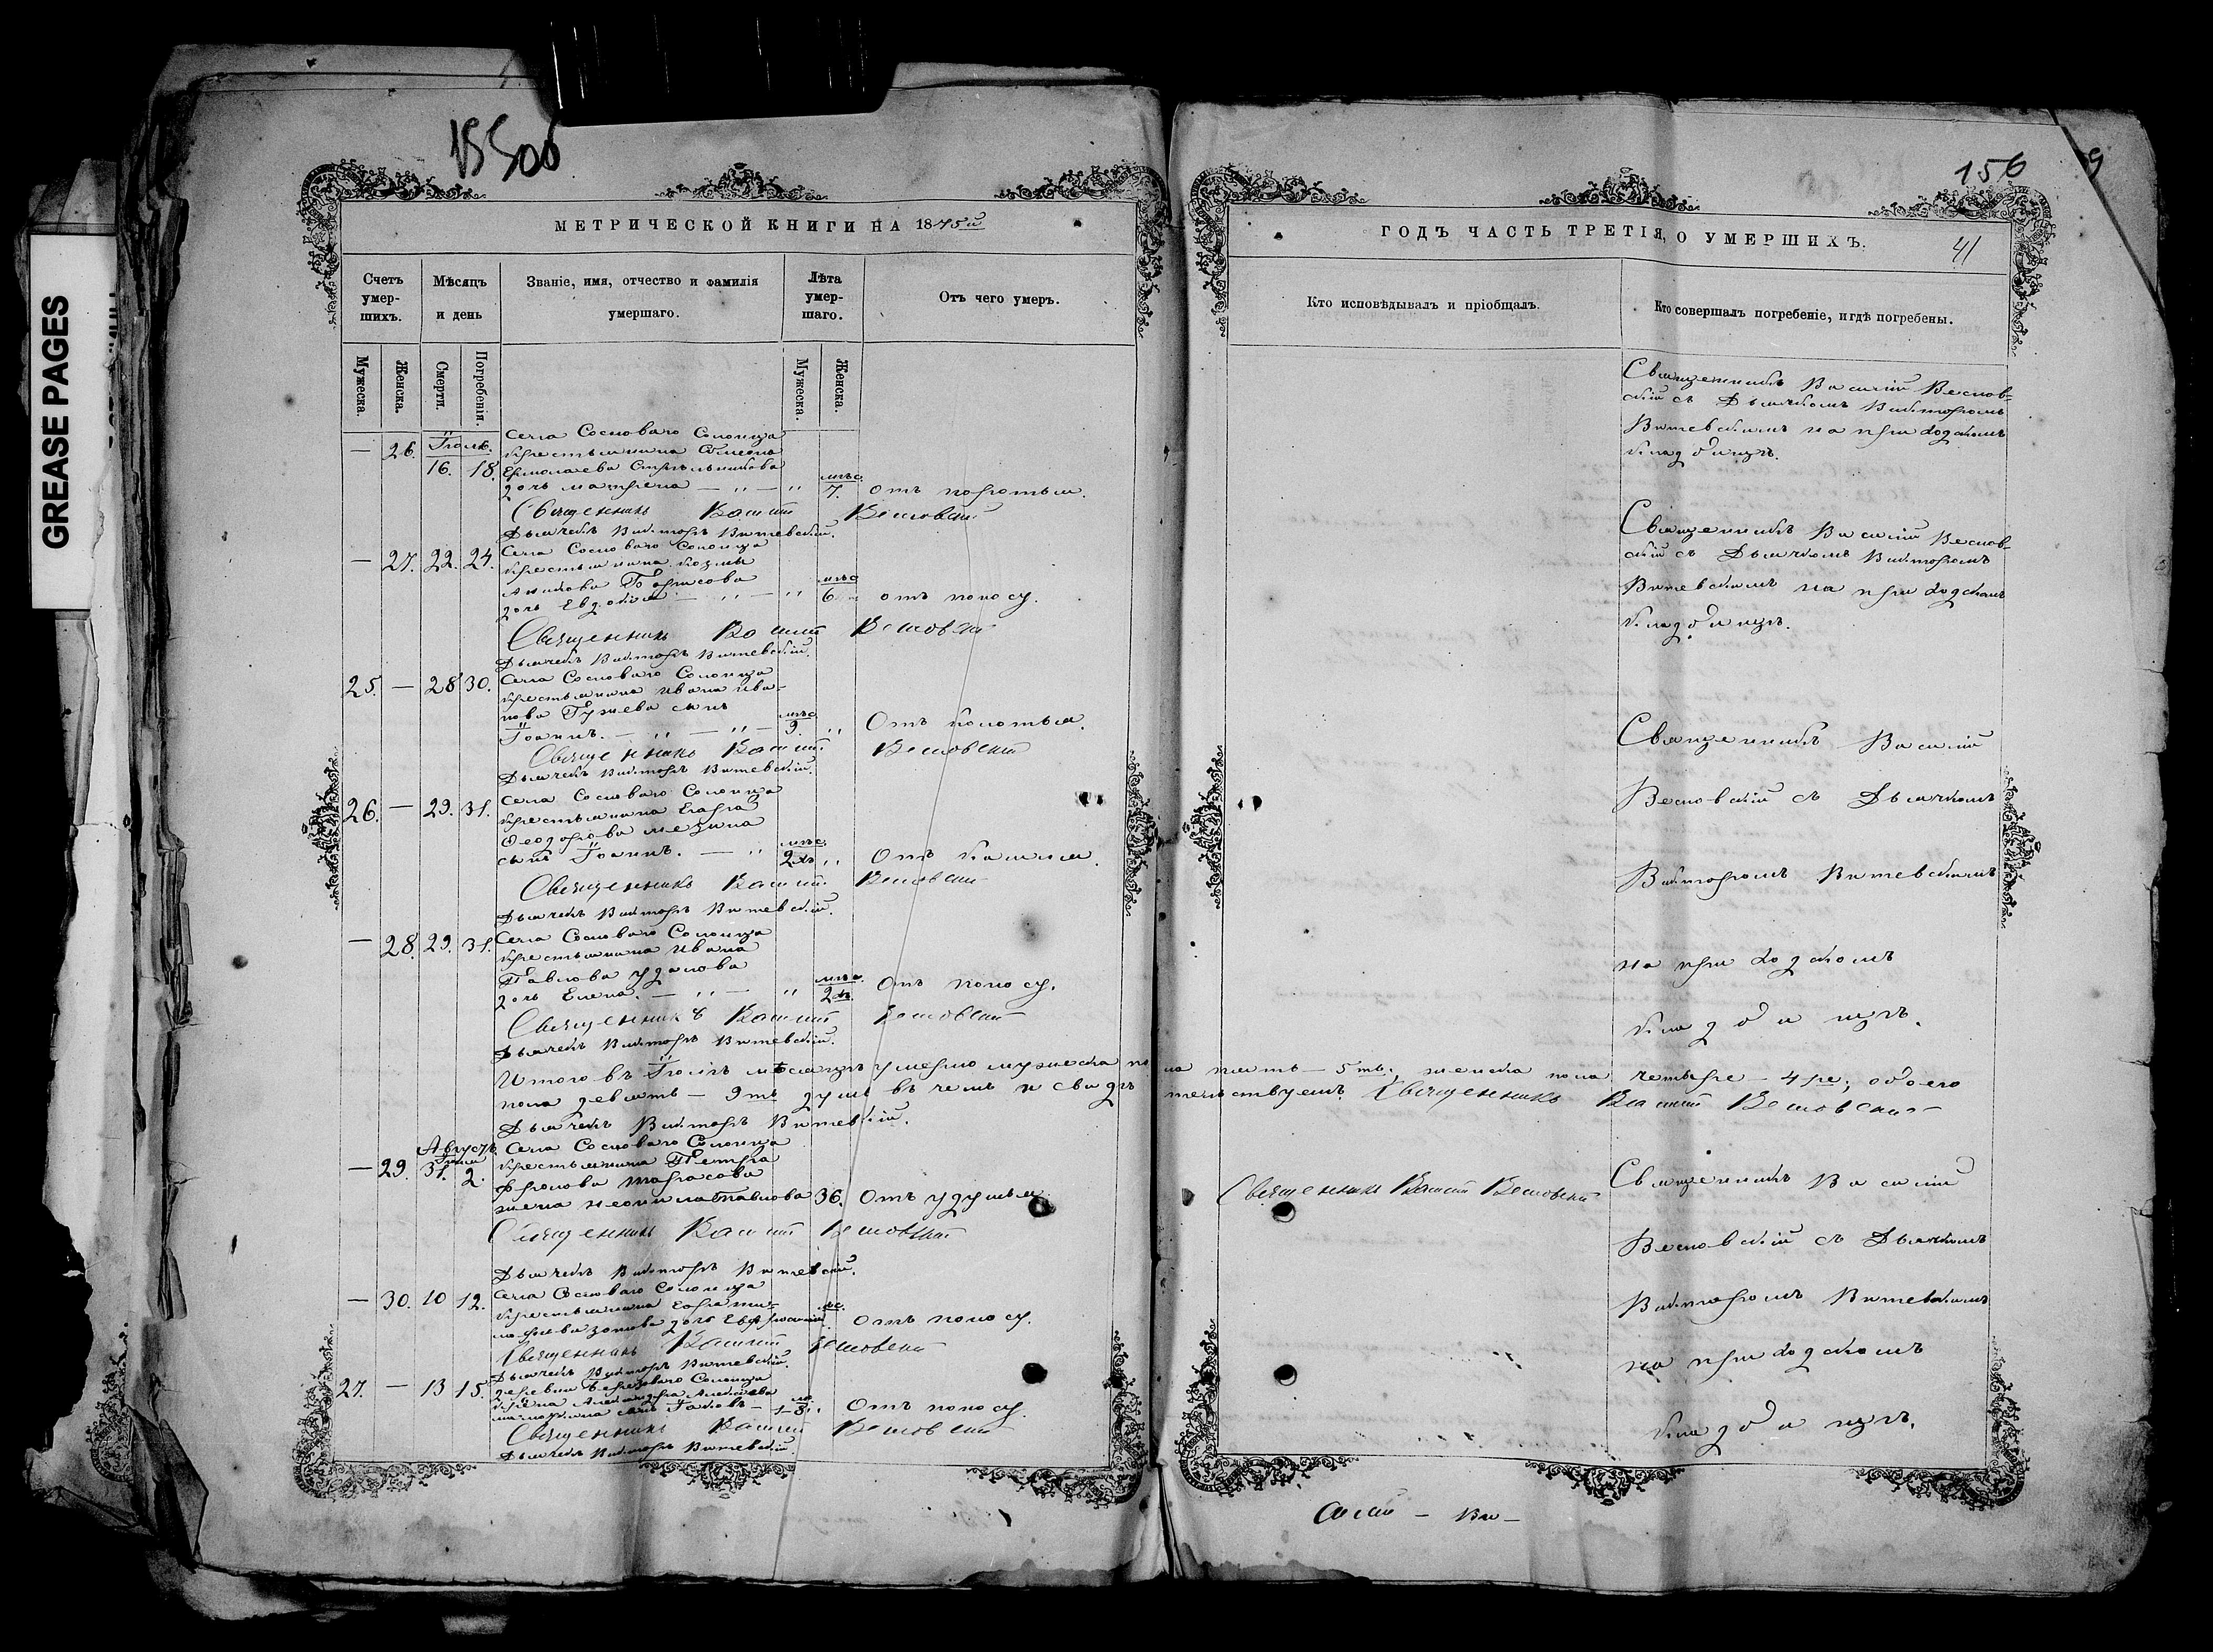 GREASE PAGES
156
МЕТРИЧЕСКОЙ КНИГИ НА 1875й
Счетъ умер-шихъ.
Мѣсяцъ и день
Званіе, имя, отчество и фамилія умершаго.
Лѣта умер-шаго.
Отъ чего умеръ.
Мужеска.
Женска.
Смерти.
Погребенія.
Мужеска.
Женска.
Іюль.
Села Сосноваго Солонца
— 26. 16. 18.
крестьянина Симеона
Ермолаева Стрѣльникова
дочь Матрена — „ — „ мѣс. 7. отъ поротья.
Священникъ Василій Весновскій
Дьячекъ Викторъ Витевскій.
— 27. 22. 24. Села Сосноваго Солонца
крестьянина Козмы
Борисова
дочь Евдокія — „ — „ мѣс. 6. отъ поносу.
Священникъ Василій Весновскій
Дьячекъ Викторъ Витевскій.
25. — 28 30. Села Сосноваго Солонца
крестьянина Ивана Ива-
нова Гужева сынъ
Іоаннъ. — „ — „ — мѣс. 9. „ Отъ колотья.
Священникъ Василій Весновскій
Дьячекъ Викторъ Витевскій.
26. — 29. 31. Села Сосноваго Солонца
крестьянина Егора
Ѳеодорова Мезина
сынъ Іоаннъ. — „ мѣс. 2хъ „ Отъ кашля.
Священникъ Василій Весновскій
Дьячекъ Викторъ Витевскій.
— 28. 29. 31. Села Сосноваго Солонца
крестьянина Ивана
Павлова Удалова
дочь Елена. — „ — „ мѣс. 2хъ. Отъ поносу.
Священникъ Василій Весновскій
Дьячекъ Викторъ Витевскій.
Итого въ Іюлѣ мѣсяцѣ умерло мужеска по
пола девять — 9ть душъ въ чемъ и свидѣ
Дьячекъ Викторъ Витевскій.
Августъ
Села Сосноваго Солонца
— 29. 31. 2. крестьянина Петра
Фролова Тарасова
жена Неонила Павлова 36. Отъ удушья.
Священникъ Василій Весновскій
Дьячекъ Викторъ Витевскій.
— 30. 10 12. Села Сосноваго Солонца
крестьянина Егора Ти-
моѳеева Зотова дочь Евфросинія Отъ поносу.
Священникъ Василій Весновскій
Дьячекъ Викторъ Витевскій.
27. — 13 15. деревни Березоваго Солонца
сынъ Іаковъ — Отъ поносу.
Священникъ Василій Весновскій
Дьячекъ Викторъ Витевскій.
ГОДЪ ЧАСТЬ ТРЕТІЯ, О УМЕРШИХЪ.
41
Кто исповѣдывалъ и пріобщалъ.
Кто совершалъ погребеніе, и гдѣ погребены.
Священникъ Василій Веснов-
скій съ Дьячкомъ Викторомъ
Витевскимъ на приходскомъ
кладбищѣ.
Священникъ Василій Веснов-
скій съ Дьячкомъ Викторомъ
Витевскимъ на приходскомъ
кладбищѣ.
Священникъ Василій
Весновскій съ Дьячкомъ
Викторомъ Витевскимъ
на приходскомъ
кладбищѣ.
ла пять — 5ть., женска пола четыре — 4ре; обоего
тельствуемъ. Священникъ Василій Весновскій
Священникъ Василій Весновскій
Священникъ Василій
Весновскій съ Дьячкомъ
Викторомъ Витевскимъ
на приходскомъ
кладбищѣ.